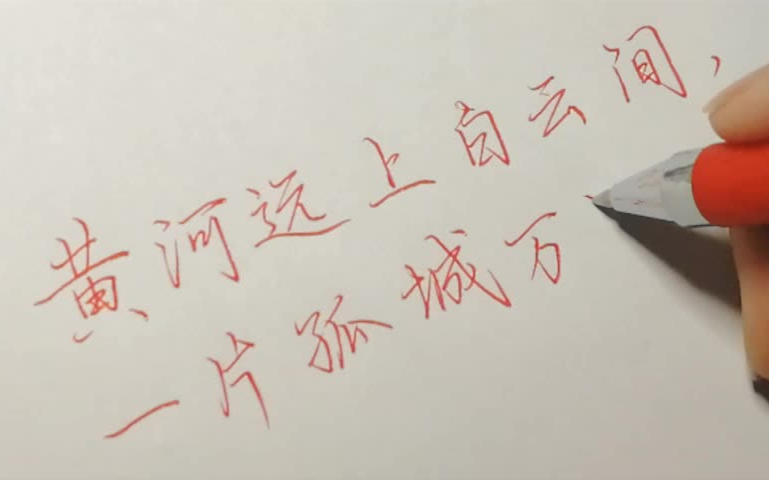 黄河远上白云间，
一片孤城万